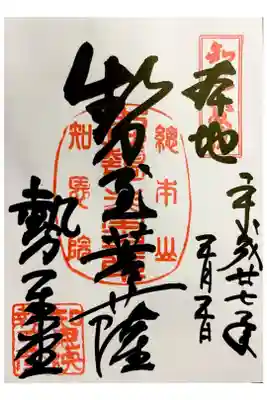 本地
平成廿七年
五月五日
勢至菩薩
勢至堂
總本山
知恩院